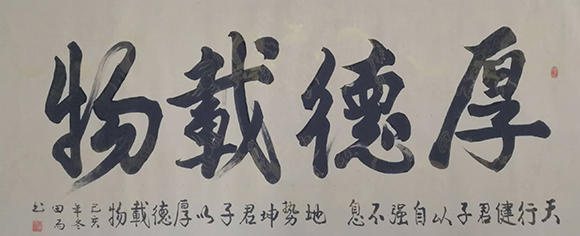 厚德載物
天行健君子以自强不息 地勢坤君子以厚德載物
己亥
年冬
田
书